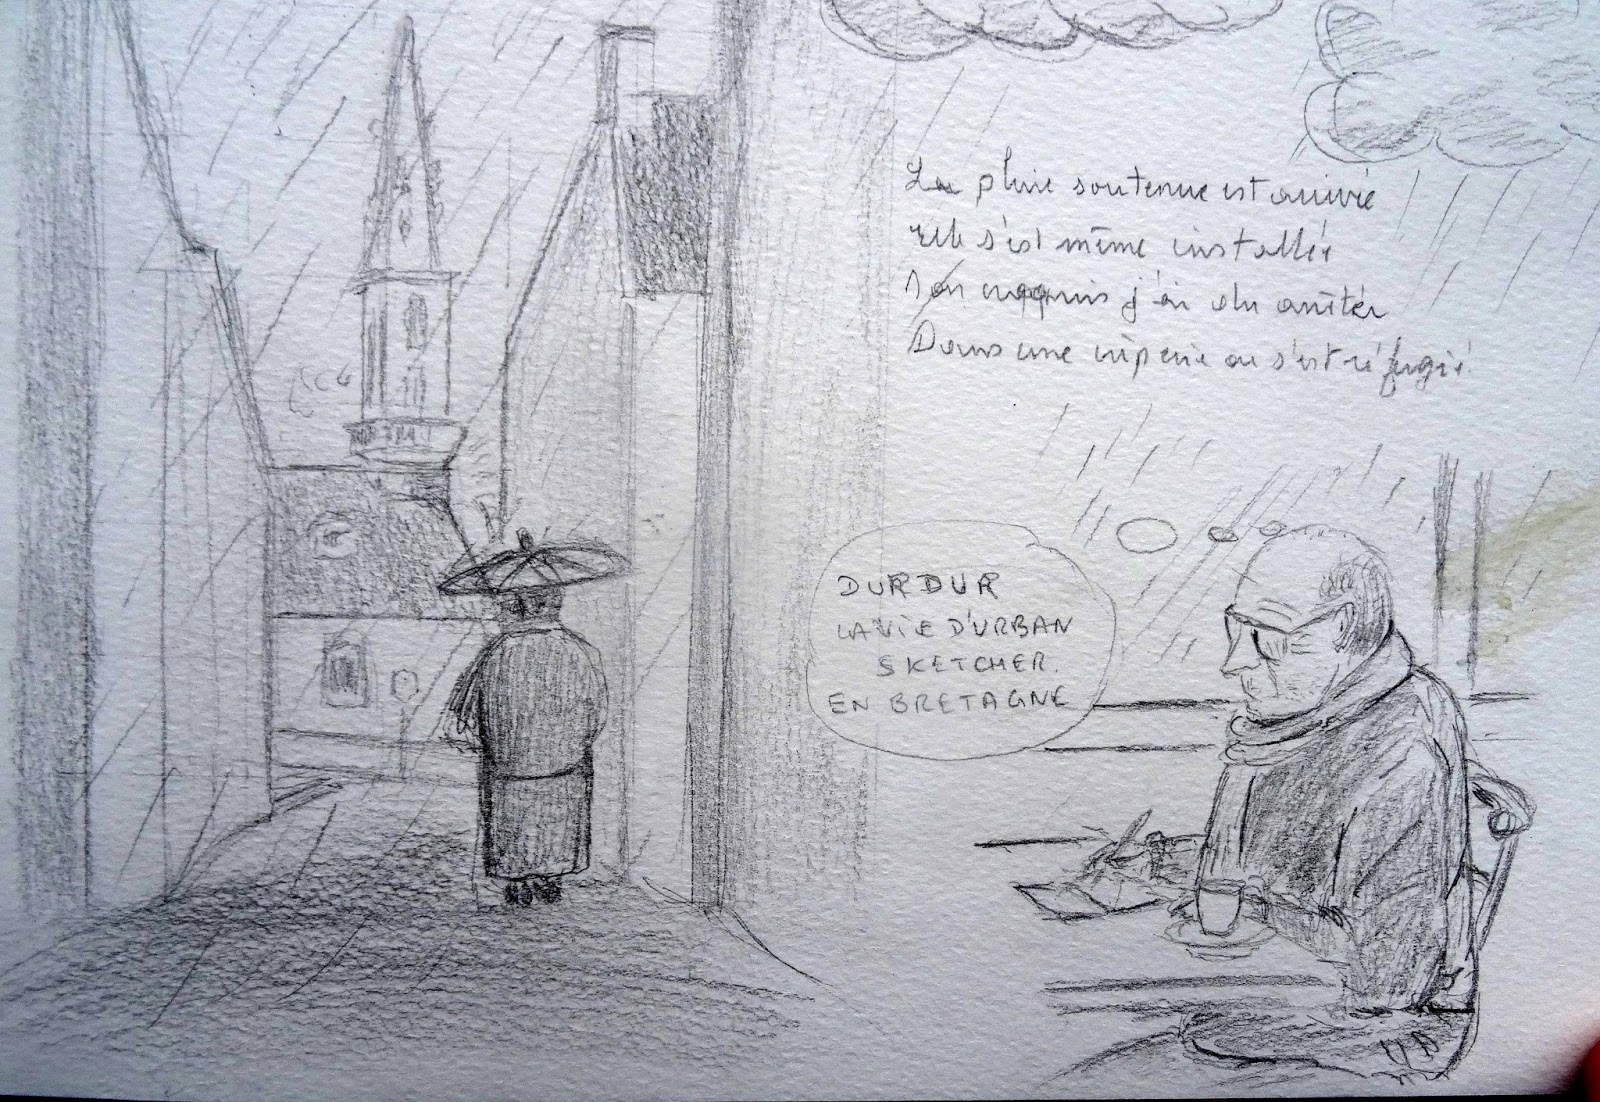 La pluie soutenue est arrivée
Elle s'est même installée
Son croquis j'ai du arrêter
Dans une crêperie on s'est réfugié.
DUR DUR
LA VIE D'URBAN
SKETCHER.
EN BRETAGNE